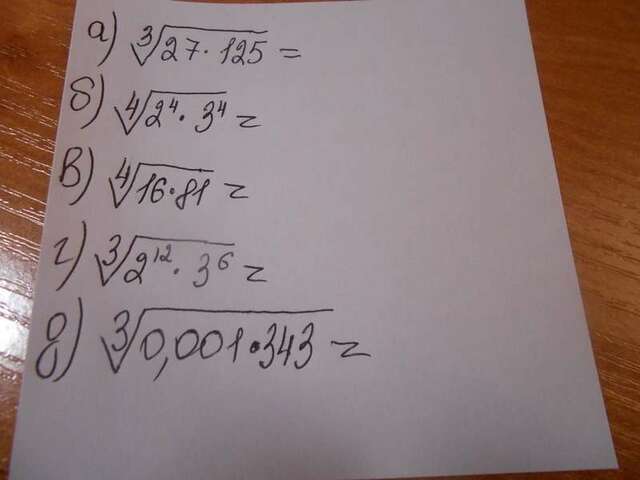 а) ∛27·125 =
б) ∜2⁴·3⁴ =
в) ∜16·81 =
г) ∛2¹²·3⁶ =
д) ∛0,001·343 =